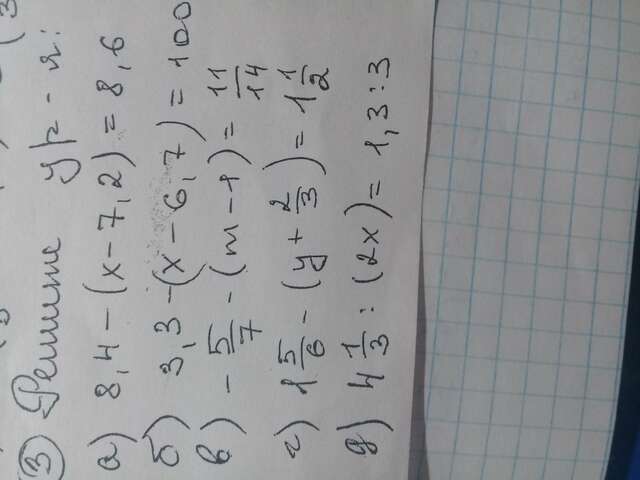 ③ Решите ур-я:
а) 8,4 - (x - 7,2) = 8,6
б) 3,3 - (x - 6,7) = 100
в) - 5/7 - (m - 1) = 11/14
г) 1 5/6 - (y + 2/3) = 1 1/2
д) 4 1/3 : (2x) = 1,3 : 3